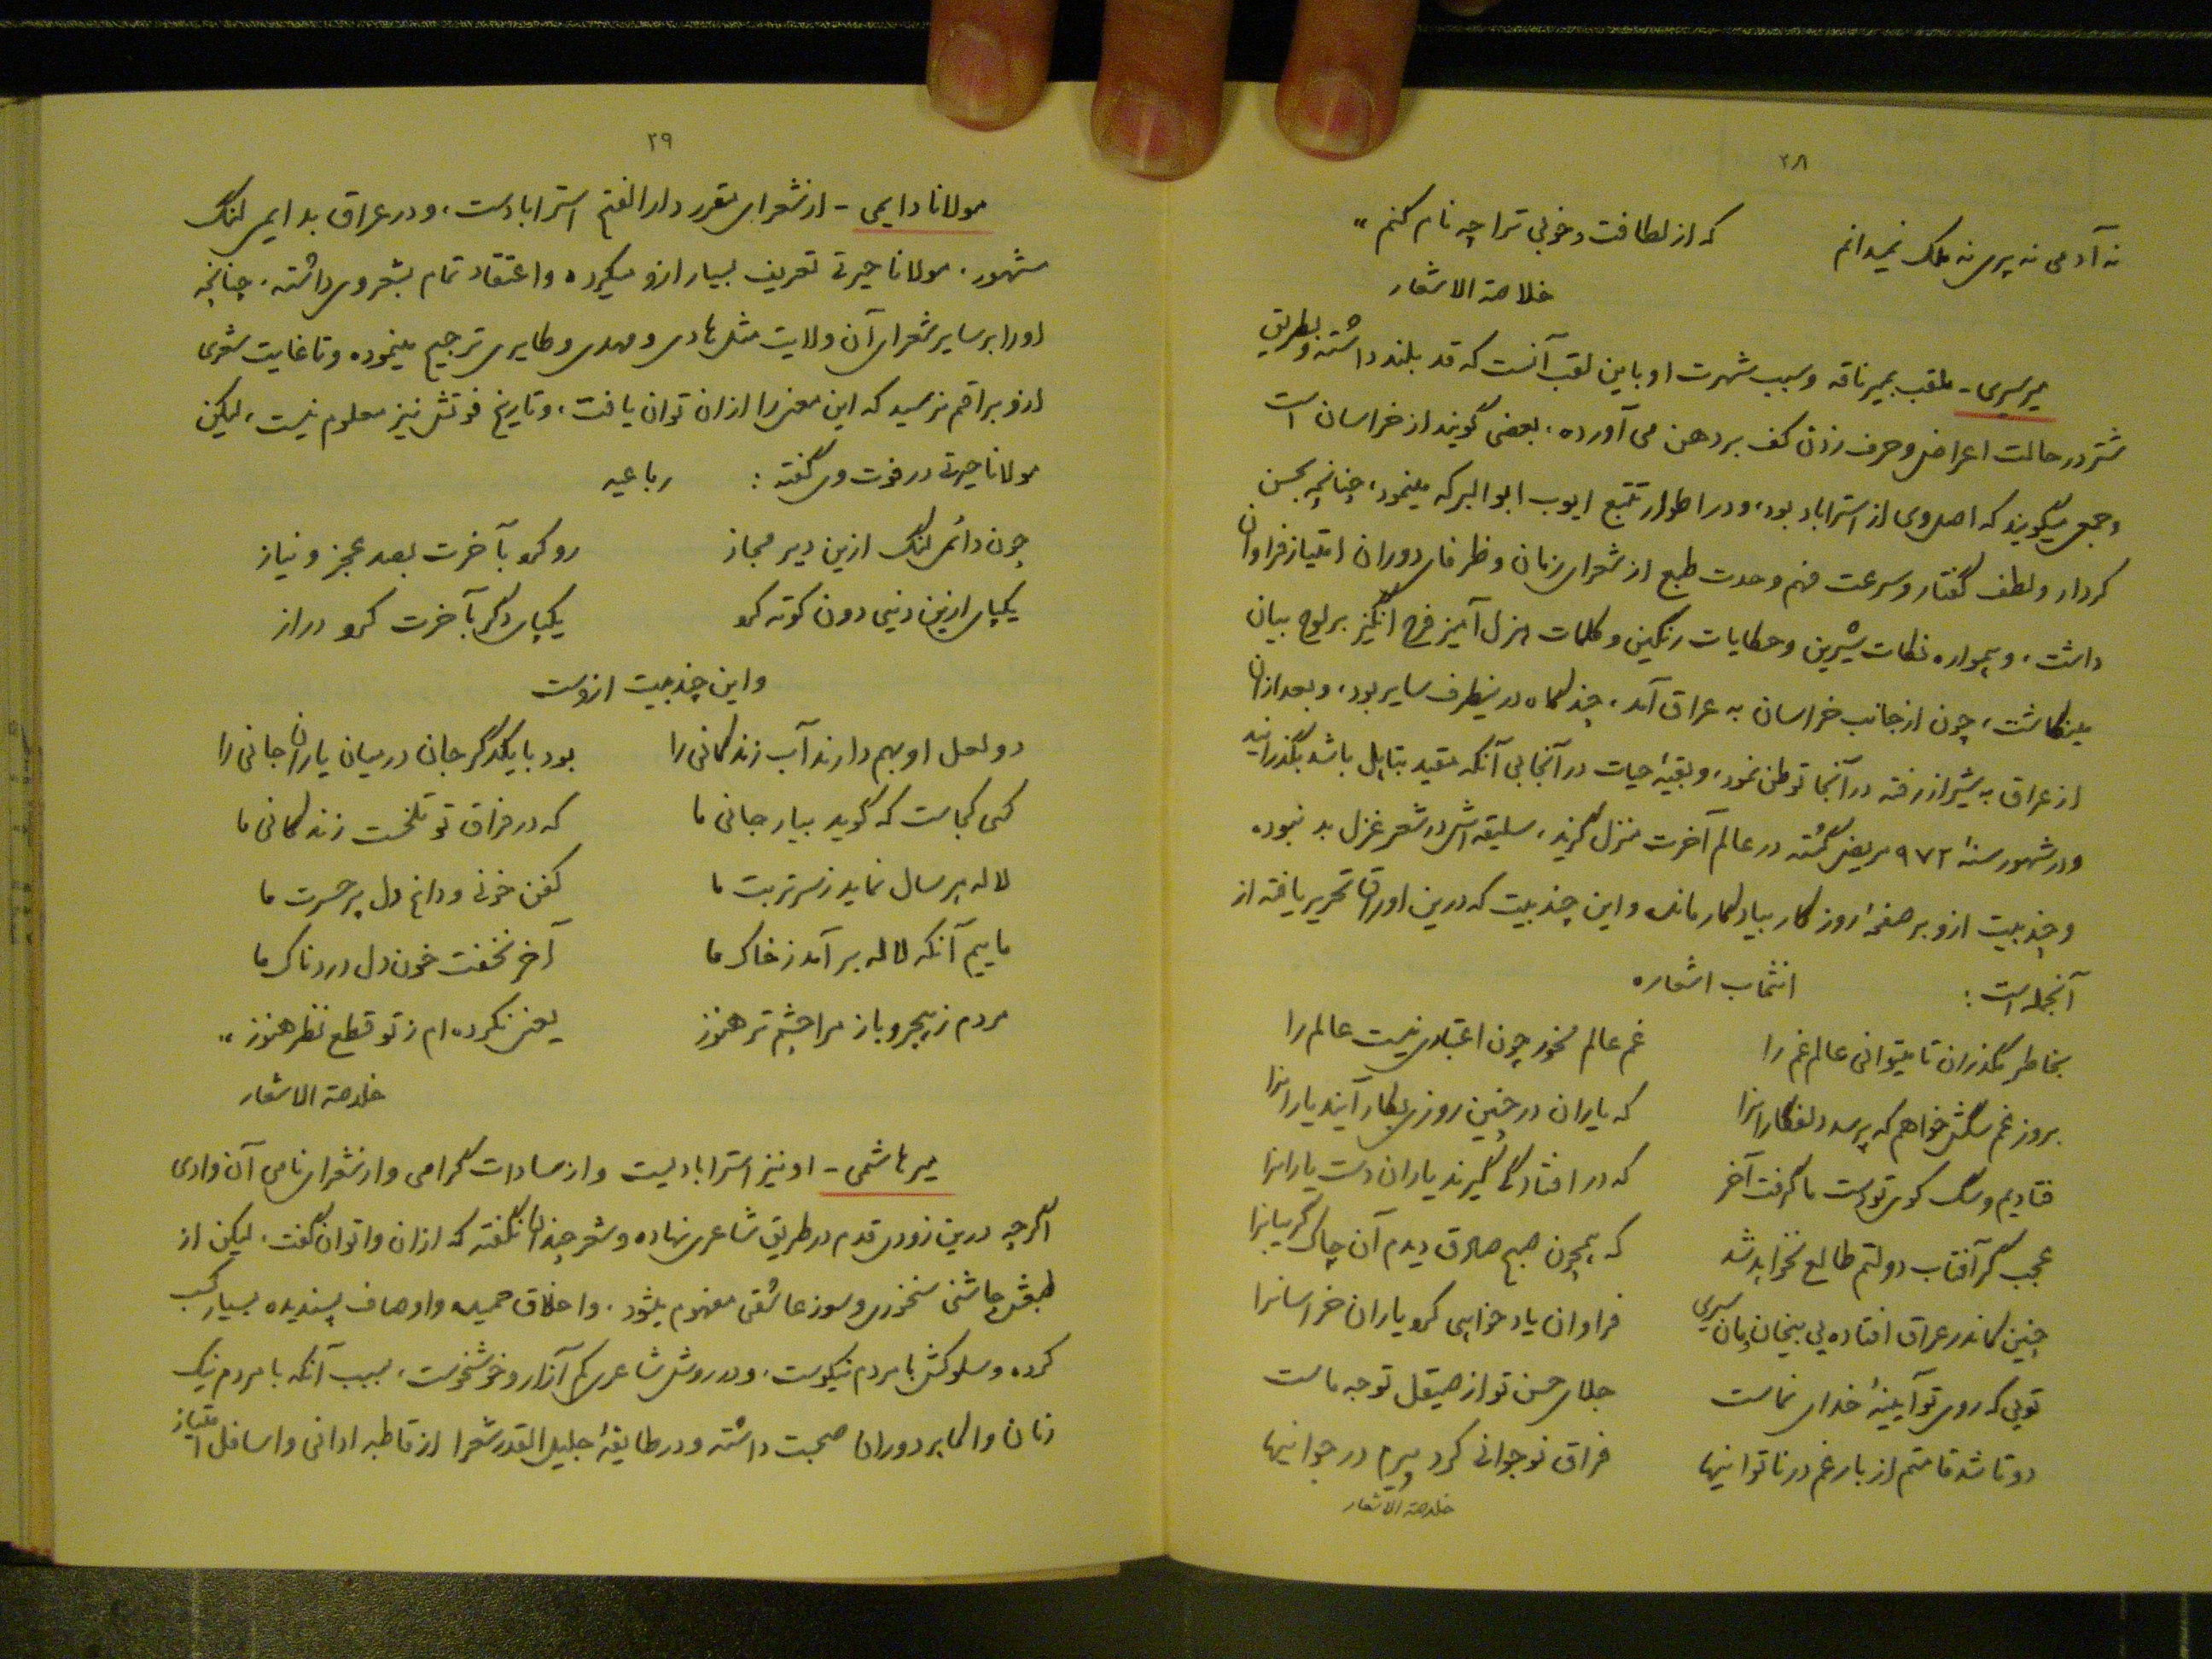 ۲۸
نه آدمی نه پری نه ملک نمیدانم که از لطافت و خوبی ترا چه نام کنم"
خلاصة الاشعار
میر سیری - ملقب بمیر ناقه و سبب شهرت او باین لقب آنست که قد بلند داشته و بطریق
شتر در حالت اعراض و حرف زدن کف بر دهن می آورده، بعضی گویند از خراسان است
و جمعی میگویند که اصل وی از استراباد بود، و در اطوار تتبع ایوب ابوالبرکه مینمود، چنانچه بحسن
کردار و لطف گفتار و سرعت فهم و حدت طبع از شعرای زمان و ظرفای دوران امتیاز فراوان
داشت، و همواره نکات شیرین و حکایات رنگین و کلمات هزل آمیز فرح انگیز بر لوح بیان
مینگاشت، چون از جانب خراسان به عراق آمد، چندگاه درینطرف سایر بود، و بعد ازان
از عراق به شیراز رفته در آنجا توطن نمود، و بقیهٔ حیات در آنجا بی آنکه مقید بتاهل باشد بگذرانید
و در شهور سنهٔ ۹۷۲ مریض گشته در عالم آخرت منزل گزید، سلیقه اش در شعر غزل بد نبوده
و چند بیت ازو بر صفحهٔ روزگار بیادگار مانده و این چند بیت که درین اوراق تحریر یافته از
آنجمله است: انتخاب اشعاره
بخاطر مگذران تا میتوانی عالم غم را غم عالم مخور چون اعتباری نیست عالم را
بروز غم سگش خواهم که پرسد دلفگارانرا که یاران در چنین روزی بکار آیند یارانرا
فتادیم و سگ کوی تو دست ما گرفت آخر که در افتادگی گیرند یاران دست یارانرا
عجب گر آفتاب دولتم طالع نخواهد شد که همچون صبح صادق دیدم آن چاک گریبانرا
چنین کاندر عراق افتاده یی بیخان و مان سیری فراوان یاد خواهی کرد یاران خراسانرا
تویی که روی تو آیینهٔ خدای نماست جلای حسن تو از صیقل توجه ماست
دوتا شد قامتم از بار غم در ناتوانیها فراق نوجوانی کرد پیرم در جوانیها
خلاصة الاشعار
۲۹
مولانا دایمی - از شعرای مقرر دارالفتح استرابادست، و در عراق به دایمی لنگ
مشهور. مولانا حیرتی تعریف بسیار ازو میکرده و اعتقاد تمام بشعر وی داشته، چنانچه
او را بر سایر شعرای آن ولایت مثل هادی و مهدی و طایری ترجیح مینموده و تا غایت شعری
ازو براقم نرسید که این معنی را از ان توان یافت، و تاریخ فوتش نیز معلوم نیست، لیکن
مولانا حیرتی در فوت وی گفته: رباعیه
چون دائم لنگ ازین دیر مجاز رو کرد بآخرت بصد عجز و نیاز
یکپای ازین دنیی دون کوته کرد یکپای دگر بآخرت کرد دراز
و این چند بیت ازوست
دو لعل او بهم دارند آب زندگانی را بود با یکدگر جان در میان یاران جانی را
کسی کجاست که گوید بیار جانی ما که در فراق تو تلخست زندگانی ما
لاله هر سال نماید ز سر تربت ما کفن خونی و داغ دل پر حسرت ما
ماییم آنکه لاله برآمد ز خاک ما آخر نخفت خون دل دردناک ما
مردم ز هجر و باز مرا چشم تر هنوز یعنی نکرده ام ز تو قطع نظر هنوز"
خلاصة الاشعار
میر هاشمی - او نیز استرابادیست و از سادات گرامی و از شعرای نامی آن وادی
اگرچه درین زودی قدم در طریق شاعری نهاده و شعر چندان نگفته که ازان وا توان گفت، لیکن از
طبعش چاشنی سخنوری و سوز عاشقی مفهوم میشود، و اخلاق حمیده و اوصاف پسندیده بسیار کسب
کرده و سلوکش با مردم نیکوست، و در روش شاعری کم آزار و خوشخوست، بسبب آنکه با مردم نیک
زمان و اکابر دوران صحبت داشته و در طایفهٔ جلیل القدر شعرا از قاطبه ادانی و اسافل امتیاز